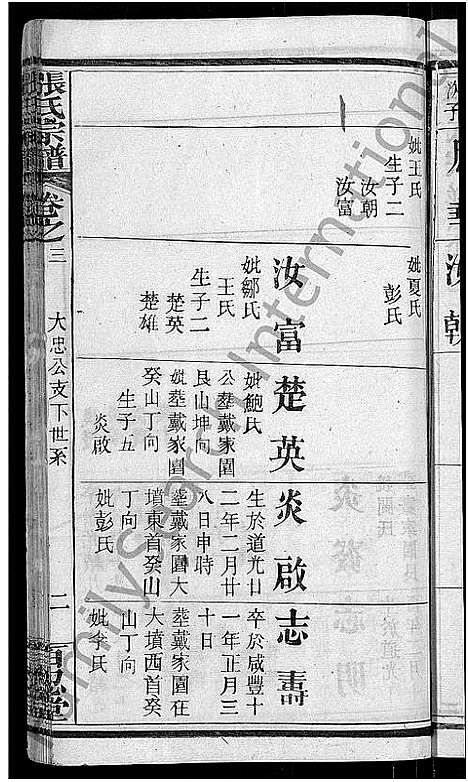 妣王氏
生子二
汝朝
汝富
妣夏氏
彭氏
汝富
妣鄒氏
王氏
生子二
楚英
楚雄
楚英
妣鮑氏
公塟戴家園
艮山坤向
妣塟戴家園
癸山丁向
生子五
炎啟
炎啟
生於道光廿
二年二月廿
八日申時
塟戴家園大
墳東首癸山
丁向
妣彭氏
志壽
卒於咸豐十
一年正月三
十日
塟戴家園在
大墳西首癸
山丁向
妣李氏
張氏宗譜
卷之三
大忠公支下世系
二
百忍堂
FamilySearch International